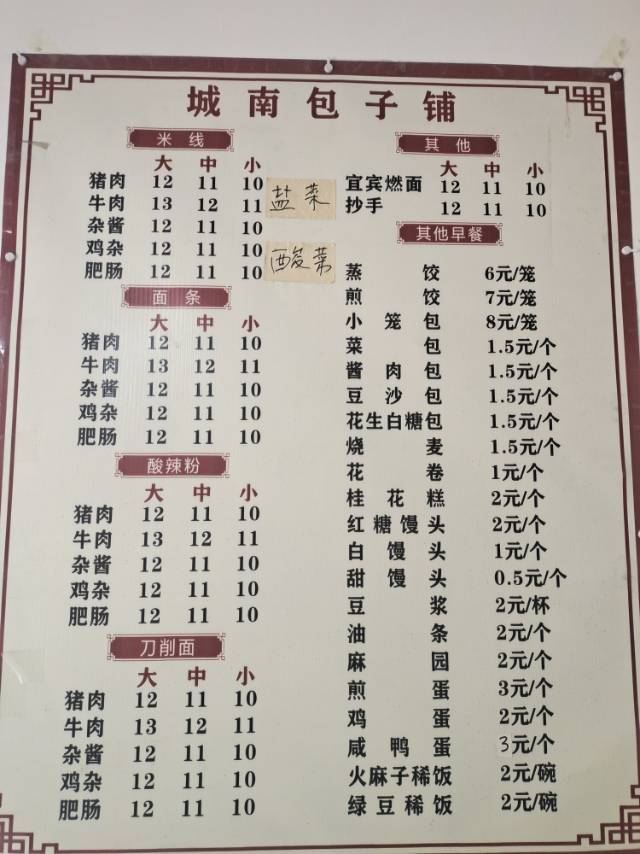 城南包子铺
米线
大 中 小
猪肉 12 11 10
牛肉 13 12 11
杂酱 12 11 10
鸡杂 12 11 10
肥肠 12 11 10
盐菜
酸菜
面条
大 中 小
猪肉 12 11 10
牛肉 13 12 11
杂酱 12 11 10
鸡杂 12 11 10
肥肠 12 11 10
酸辣粉
大 中 小
猪肉 12 11 10
牛肉 13 12 11
杂酱 12 11 10
鸡杂 12 11 10
肥肠 12 11 10
刀削面
大 中 小
猪肉 12 11 10
牛肉 13 12 11
杂酱 12 11 10
鸡杂 12 11 10
肥肠 12 11 10
其他
大 中 小
宜宾燃面 12 11 10
抄手 12 11 10
其他早餐
蒸饺 6元/笼
煎饺 7元/笼
小笼包 8元/笼
菜包 1.5元/个
酱肉包 1.5元/个
豆沙包 1.5元/个
花生白糖包 1.5元/个
烧麦 1.5元/个
花卷 1元/个
桂花糕 2元/个
红糖馒头 2元/个
白馒头 1元/个
甜馒头 0.5元/个
豆浆 2元/杯
油条 2元/个
麻园 2元/个
煎蛋 3元/个
鸡蛋 2元/个
咸鸭蛋 3元/个
火麻子稀饭 2元/碗
绿豆稀饭 2元/碗